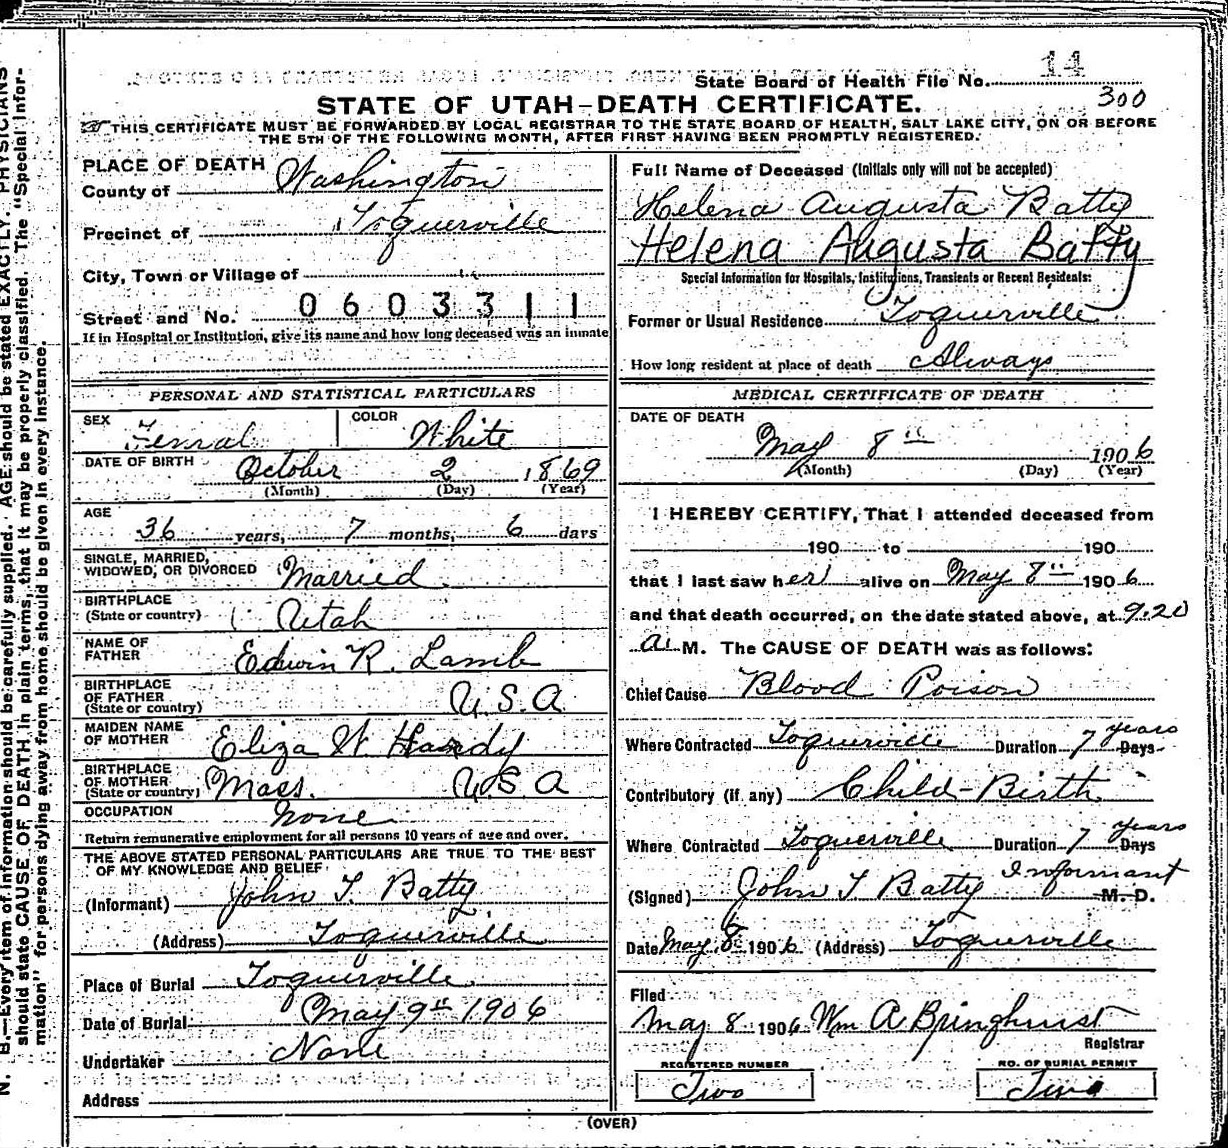 State Board of Health File No. 14
300
STATE OF UTAH—DEATH CERTIFICATE.
THIS CERTIFICATE MUST BE FORWARDED BY LOCAL REGISTRAR TO THE STATE BOARD OF HEALTH, SALT LAKE CITY, ON OR BEFORE
THE 5TH OF THE FOLLOWING MONTH, AFTER FIRST HAVING BEEN PROMPTLY REGISTERED.
N. B.—Every item of information should be carefully supplied. AGE should be stated EXACTLY. PHYSICIANS
should state CAUSE OF DEATH in plain terms, that it may be properly classified. The "Special Infor-
mation" for persons dying away from home should be given in every instance.
PLACE OF DEATH
County of Washington
Precinct of Toquerville
City, Town or Village of
Street and No. 0603311
If in Hospital or Institution, give its name and how long deceased was an inmate
PERSONAL AND STATISTICAL PARTICULARS
SEX Femal COLOR White
DATE OF BIRTH October 2 1869
(Month) (Day) (Year)
AGE
36 years, 7 months, 6 days
SINGLE, MARRIED,
WIDOWED, OR DIVORCED Married
BIRTHPLACE
(State or country) Utah
NAME OF
FATHER Edwin R. Lamb
BIRTHPLACE
OF FATHER
(State or country) U.S.A
MAIDEN NAME
OF MOTHER Eliza W. Handy
BIRTHPLACE
OF MOTHER
(State or country) Mass. U.S.A
OCCUPATION None
Return remunerative employment for all persons 10 years of age and over.
THE ABOVE STATED PERSONAL PARTICULARS ARE TRUE TO THE BEST
OF MY KNOWLEDGE AND BELIEF
(Informant) John T. Batty
(Address) Toquerville
Place of Burial Toquerville
Date of Burial May 9th 1906
Undertaker None
Address
Full Name of Deceased (Initials only will not be accepted)
Helena Augusta Batty
Helena Augusta Batty
Special Information for Hospitals, Institutions, Transients or Recent Residents:
Former or Usual Residence Toquerville
How long resident at place of death Always
MEDICAL CERTIFICATE OF DEATH
DATE OF DEATH
May 8th 1906
(Month) (Day) (Year)
I HEREBY CERTIFY, That I attended deceased from
190 to 190
that I last saw her alive on May 8th 1906
and that death occurred, on the date stated above, at 9.20
A. M. The CAUSE OF DEATH was as follows:
Chief Cause Blood Poison
Where Contracted Toquerville Duration 7 years Days
Contributory (if any) Child-Birth
Where Contracted Toquerville Duration 7 years Days
(Signed) John T Batty Informant M. D.
Date May 8 1906 (Address) Toquerville
Filed
May 8 1906 Wm A Bringhurst
Registrar
REGISTERED NUMBER
Two
NO. OF BURIAL PERMIT
Two
(OVER)